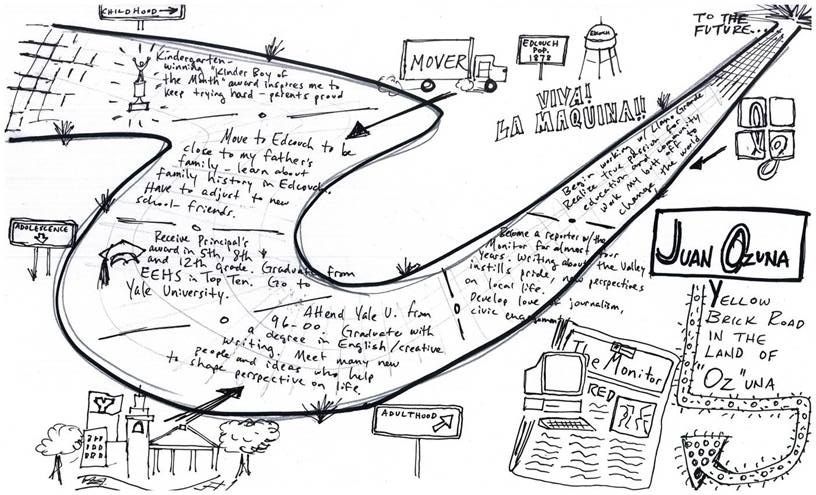 CHILDHOOD
Kindergarten -
winning "Kinder Boy of
the Month" award inspires me to
keep trying hard - parents proud
MOVER
EDCOUCH
POP.
1878
EDCOUCH
TO THE
FUTURE...
VIVA!
LA MAQUINA!!
Move to Edcouch to be
close to my father's
family - learn about
family history in Edcouch.
Have to adjust to new
school friends.
ADOLESCENCE
Receive Principal's
award in 5th, 8th
and 12th grade. Graduate from
EEHS in Top Ten. Go to
Yale University.
Attend Yale U. from
96-00. Graduate with
a degree in English/creative
writing. Meet many new
people and ideas who help
to shape perspective on life.
Y
ADULTHOOD
Become a reporter w/ the
Monitor for almost four
years. Writing about the Valley
instills pride, new perspectives
on local life.
Develop love of journalism,
civic engagement.
Begin working w/ Llano Grande
Realize true passion for
education and community
Work my butt off to
change the world
The Monitor
RED
JUAN OZUNA
YELLOW
BRICK ROAD
IN THE
LAND OF
"OZ"UNA